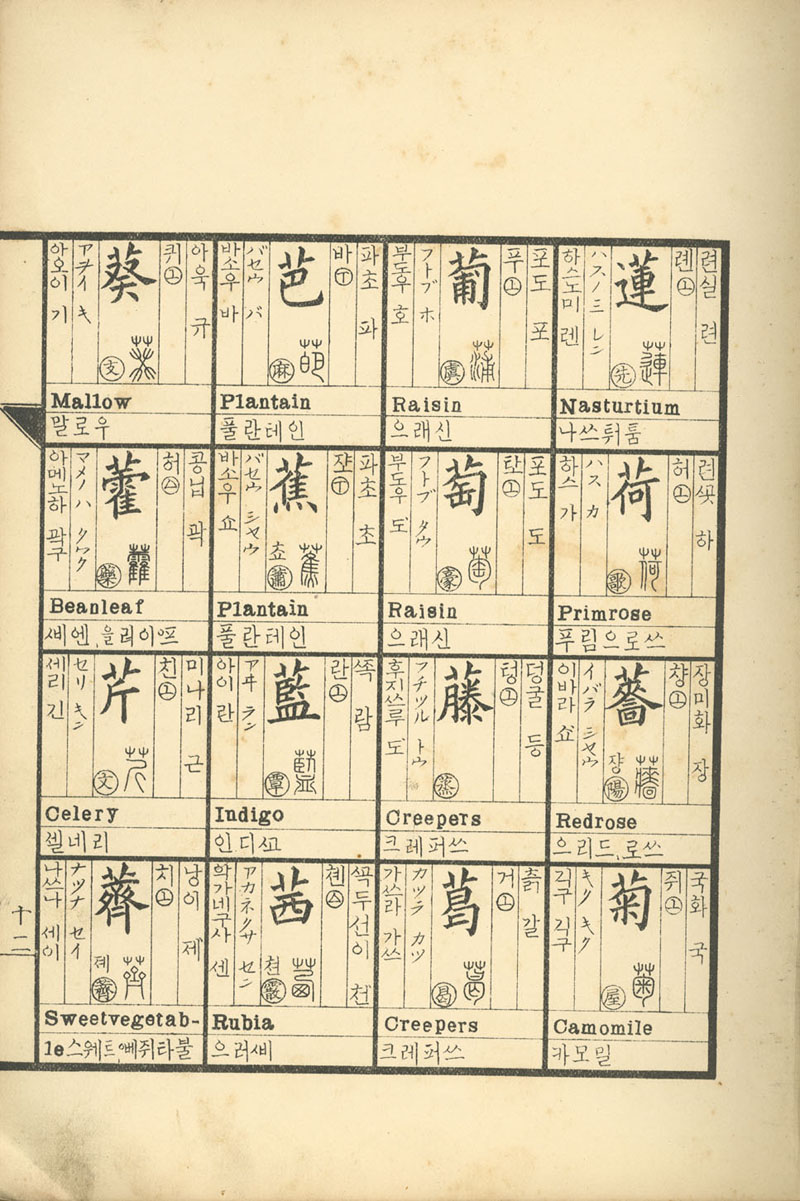 련실 련
롄 ㅗ
蓮
先
ハスノミ レン
하스노미 렌
Nasturtium
나쓰튀툼
련닙 하
허 ㅗ
荷
歌
ハス カ
하스 가
Primrose
푸림으로쓰
장미화 장
챵 ㅗ
薔
쟝
陽
イバラ シヤウ
이바라 쇼
Redrose
으리드,로쓰
국화 국
쥐 ㅗ
菊
屋
キク キク
긱구 긱구
Camomile
카모밀
포도 포
푸 ㅗ
葡
虞
フトブ ホ
부도우 호
Raisin
으래신
포도 도
탄 ㅗ
萄
豪
フトブ タウ
부도우 도
Raisin
으래신
덩굴 등
텅 ㅗ
藤
蒸
フチツル トウ
후지쓰루 도
Creepers
크레퍼쓰
츩 갈
거 ㅗ
葛
曷
カツラ カツ
가쓰라 가쓰
Creepers
크레퍼쓰
파초 파
바 ㅜ
芭
麻
バセウ バ
바소우 바
Plantain
풀란테인
파초 초
쟈 ㅜ
蕉
쵸
蕭
バセウ シヤウ
바소우 쇼
Plantain
풀란테인
쪽 람
란 ㅗ
藍
覃
アヰ ラン
아이 란
Indigo
인디쇠
쏙두선이 천
첸 ㅅ
茜
쳔
霰
アカネクサ セン
아가네구사 센
Rubia
으러삐
아욱 규
퀴 ㅗ
葵
支
アヲイ キ
아오이 기
Mallow
말로우
콩닙 곽
허 ㅅ
藿
藥
マメノハ クワク
아메노하 곽구
Beanleaf
삐엔,을리이프
미나리 근
친 ㅗ
芹
文
セリ キン
세리 긴
Celery
쎌네리
낭이 제
치 ㅗ
薺
졔
齊
ナツナ セイ
나쓰나 세이
Sweetvegetab-
le스웨트,뻬쥐타불
十二